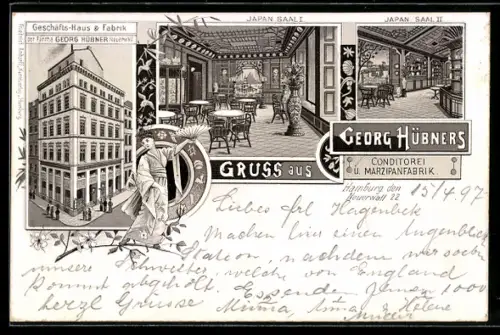 Geschäfts-Haus & Fabrik
der Firma GEORG HÜBNER Neuerwall
JAPAN SAAL I
JAPAN SAAL II
GRUSS aus
GEORG HÜBNERS
CONDITOREI
U. MARZIPANFABRIK.
Hamburg den 15/4 97
Neuerwall 22
Liebes Frl Hagenbek
Machen hier einen Augenblick
Station, nachdem wir soeben
unsere Schwester, welche von England
kommt abgeholt. 1000
herzl Grüsse Helene